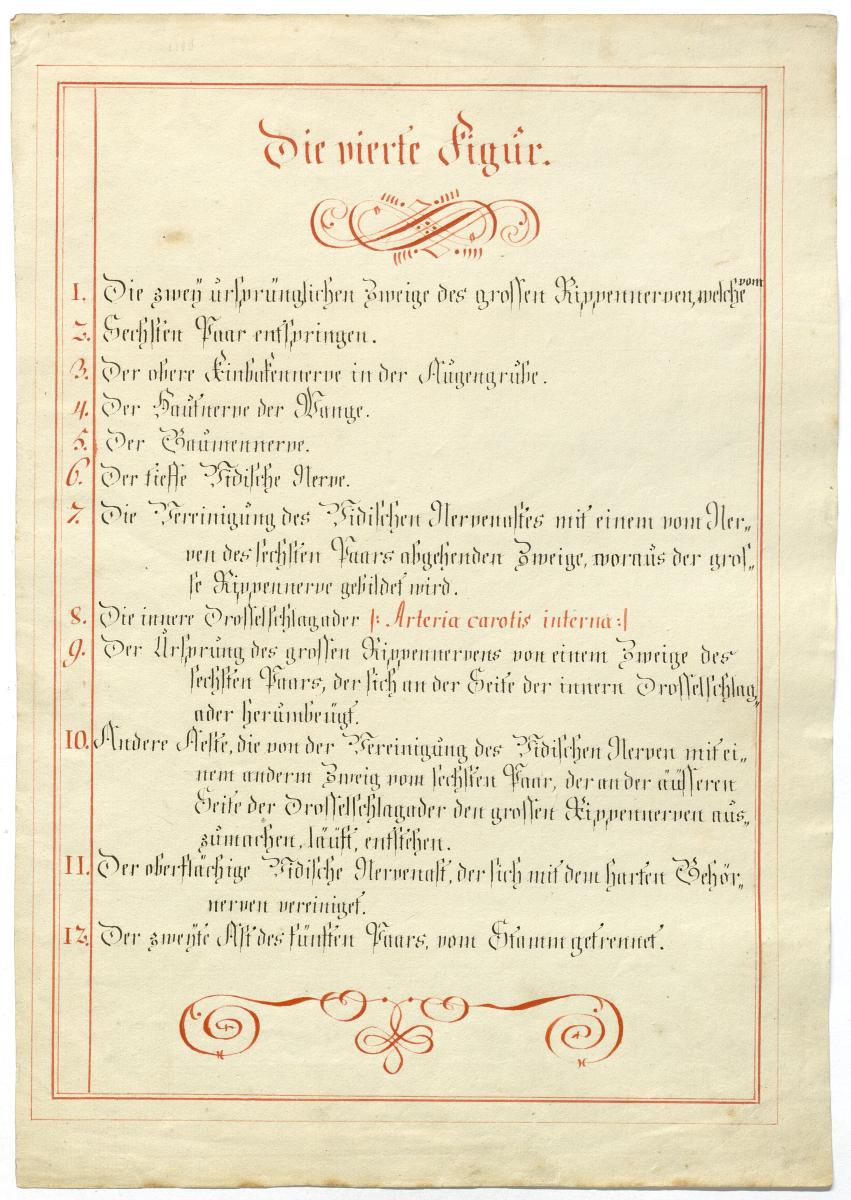 Die vierte Figur.
1. Die zweÿ ursprünglichen Zweige des grossen Rippennerven, welche vom
2. Sechsten Paar entspringen.
3. Der obere Kinbakennerve in der Augengrube.
4. Der Hautnerve der Wange.
5. Der Gaumennerve.
6. Der tieffe Vidische Nerve.
7. Die Vereinigung des Vidischen Nervenastes mit einem vom Ner„
ven des sechsten Paars abgehenden Zweige, woraus der gros„
se Rippennerve gebildet wird.
8. Die innere Drosselschlagader |: Arteria carotis interna :|
9. Der Ursprung des grossen Rippennervens von einem Zweige des
sechsten Paars, der sich an der Seite der innern Drosselschlag„
ader herumbeugt.
10. Andere Aeste, die von der Vereinigung des Vidischen Nerven mit ei„
nem anderm Zweig vom sechsten Paar, der an der äüsseren
Seite der Drosselschlagader den grossen Rippennerven aus„
zumachen, läuft, entstehen.
11. Der oberflächige Vidische Nervenast, der sich mit dem harten Gehör„
nerven vereiniget.
12. Der zweÿte Ast des fünften Paars, vom Stamm getrennet.